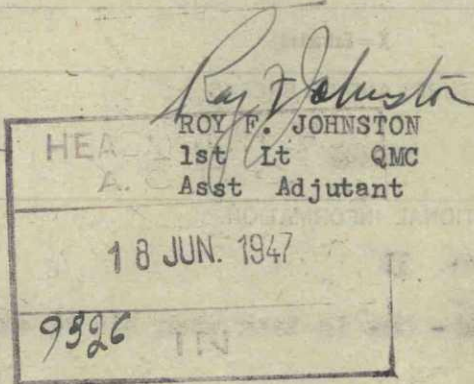 Roy F Johnston
ROY F. JOHNSTON
1st Lt QMC
Asst Adjutant
HEA
A. C
18 JUN. 1947
9326